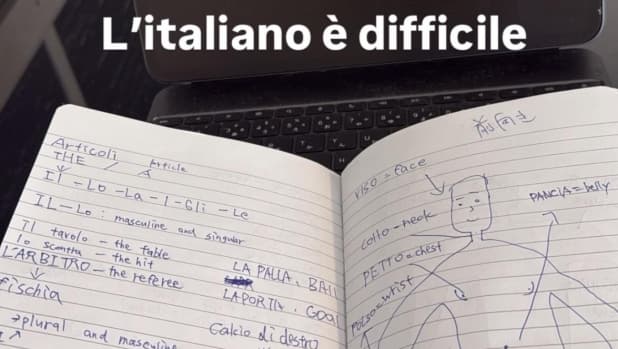 L'italiano è difficile
Articoli
THE / Article
Il - Lo - La - I - Gli - Le
IL - Lo : masculine and singular
Il tavolo - the table
lo scontro - the hit
L'ARBITRO - the referee
fischia
plural and masculine
LA PALLA . BALL
LA PORTA . GOAL
Calcio di destro
VISO = face
collo = neck
PETTO = chest
POLSO = wrist
PANCIA = belly